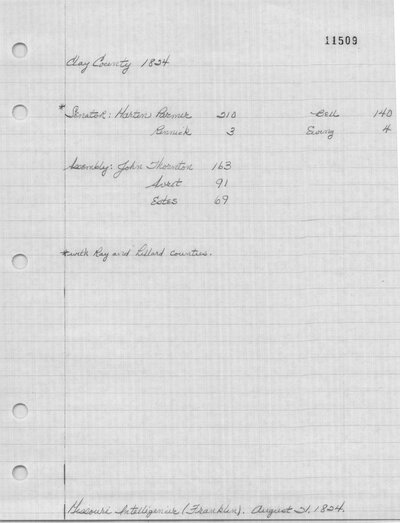 11509
Clay County 1824
* Senator: Martin Parmer 210 Bell 140
Pennick 3 Ewing 4
Assembly: John Thornton 163
Averet 91
Estes 69
* with Ray and Lillard counties.
Missouri Intelligencer (Franklin). August 21, 1824.